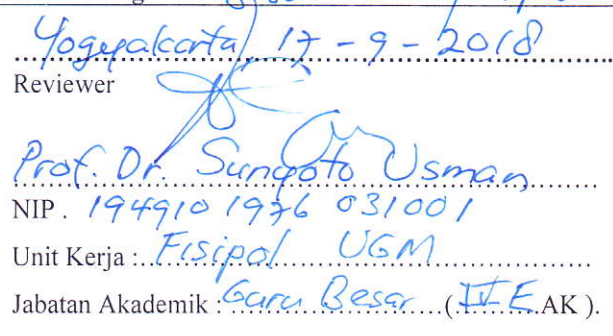 Yogyakarta, 17 - 9 - 2018
Reviewer
Prof. Dr. Sunyoto Usman
NIP. 194910 1976 031001
Unit Kerja : Fisipol UGM
Jabatan Akademik : Guru Besar (IV E AK ).